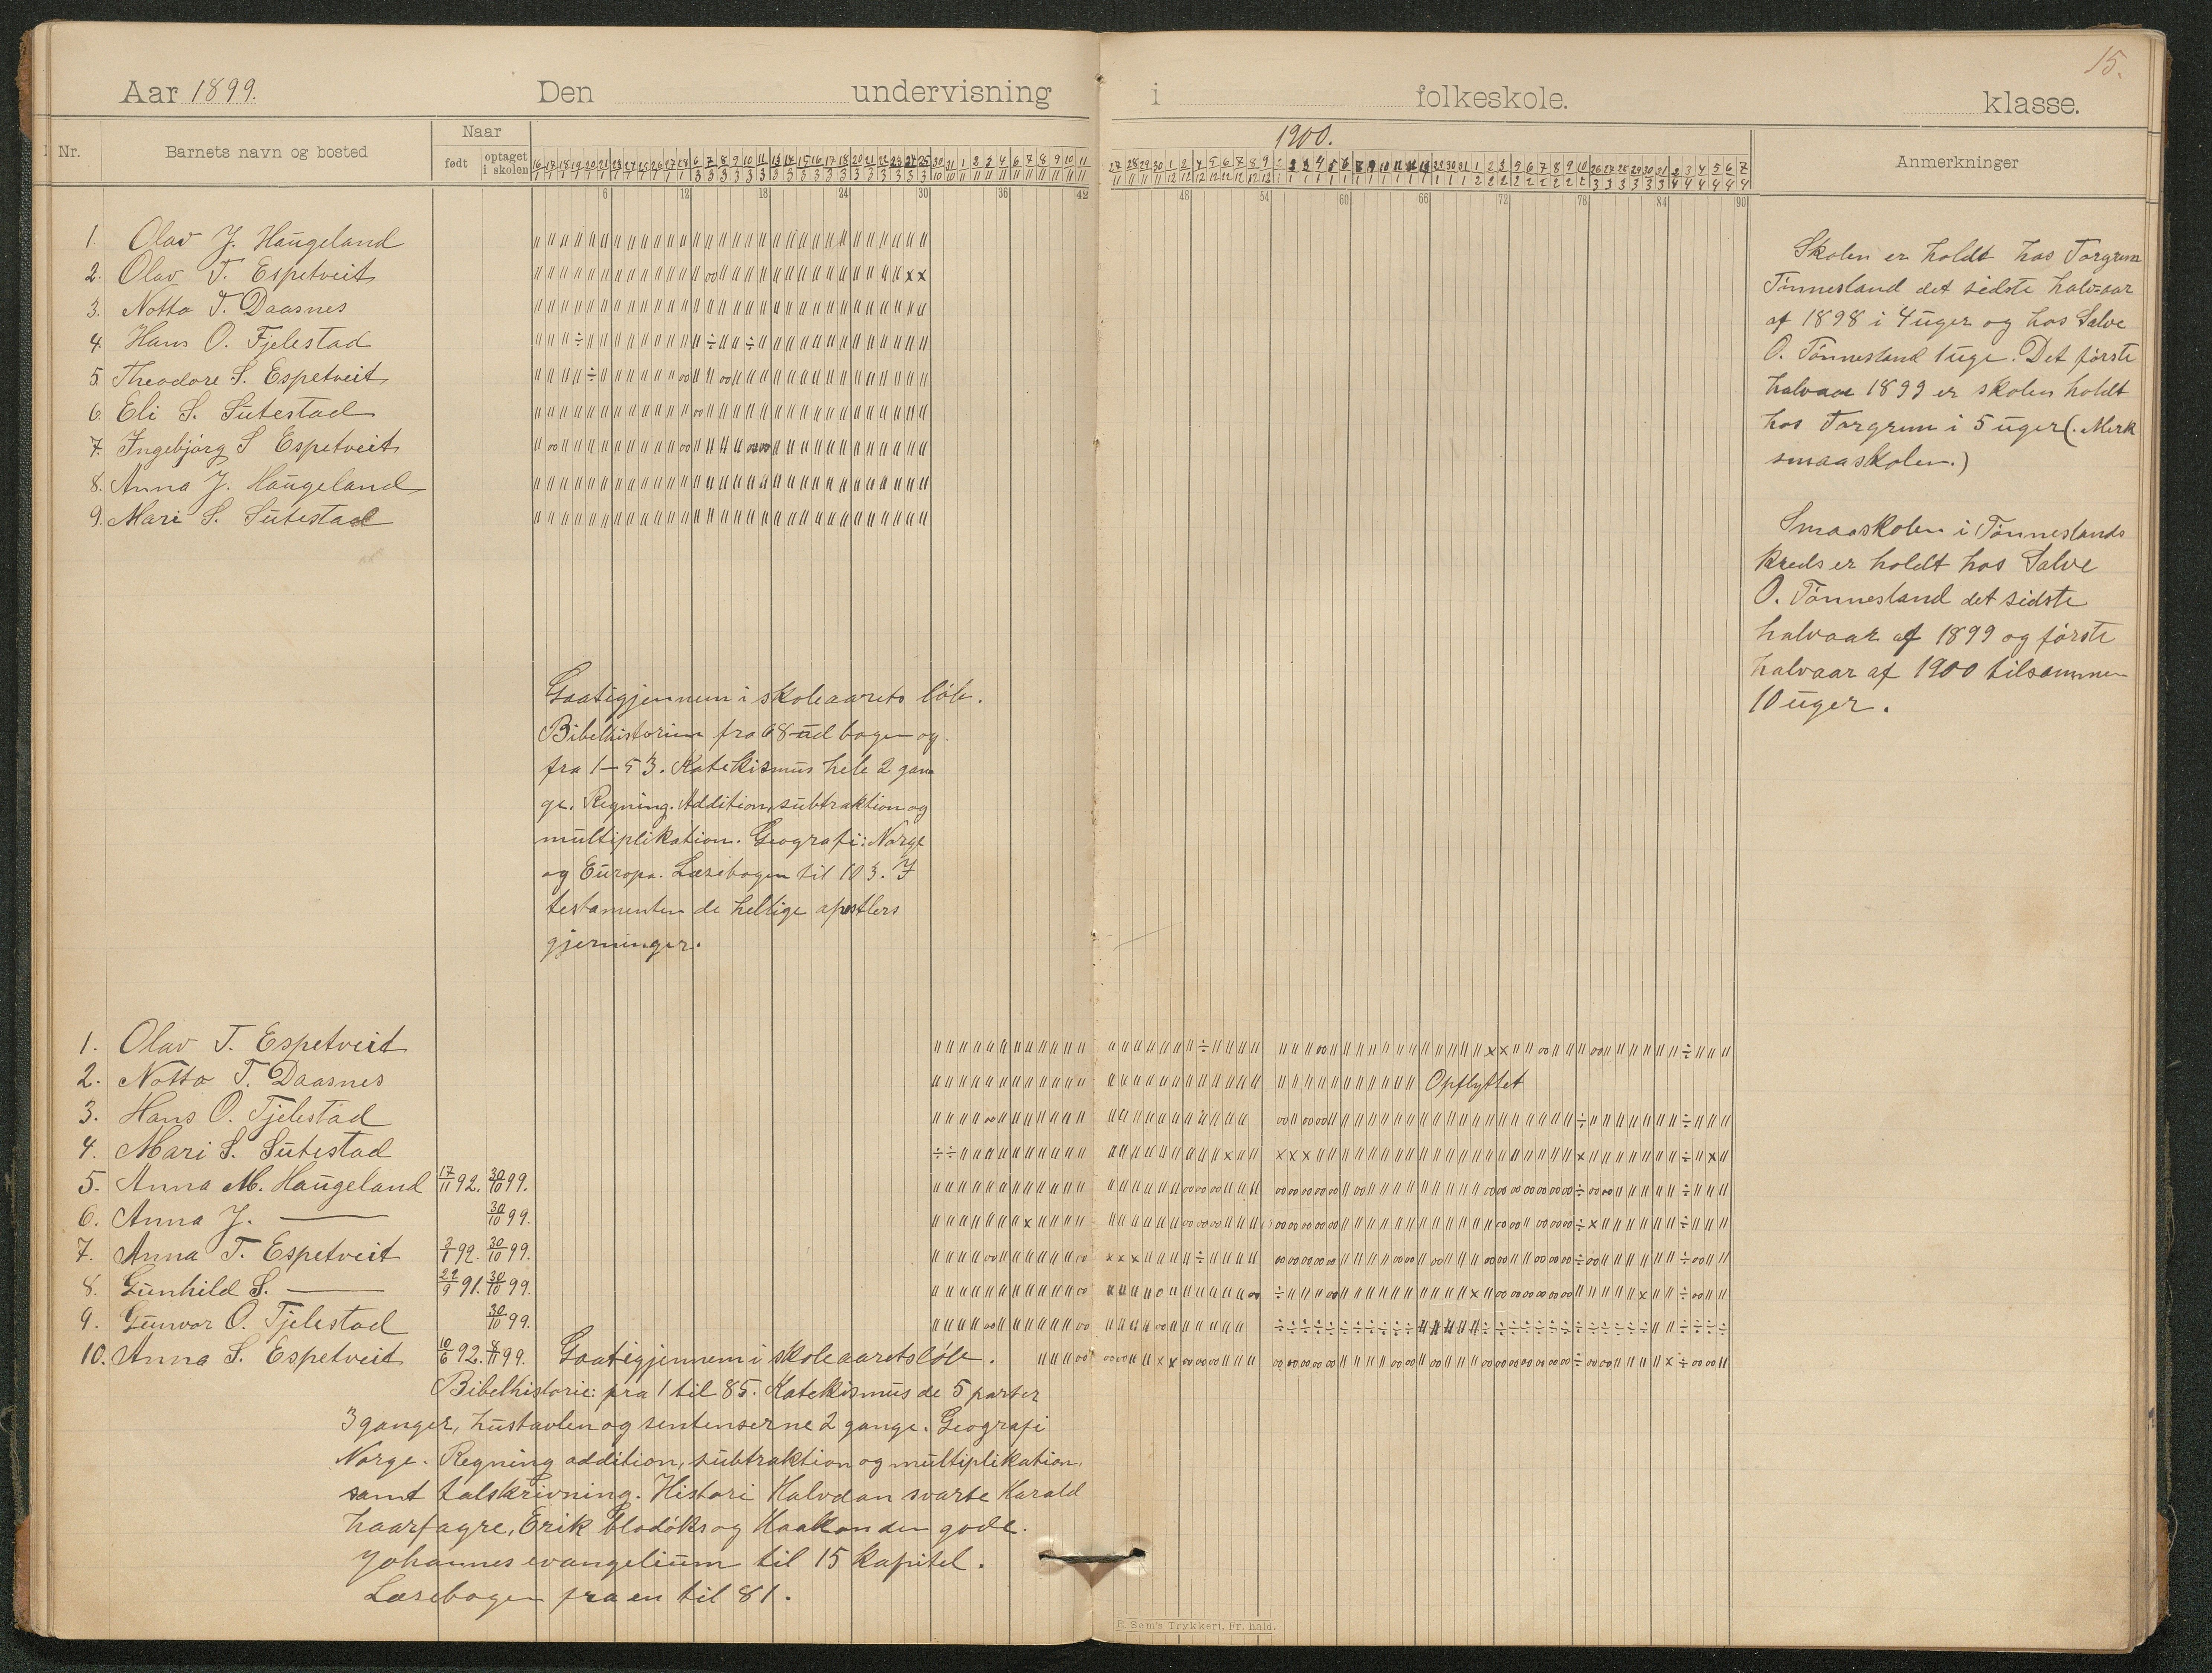 15.
Aar 1899. Den undervisning i folkeskole. klasse.
Nr. Barnets navn og bosted Naar født optaget i skolen 1900. Anmerkninger
6 12 18 24 30 36 42 48 54 60 66 72 78 84 90
1. Olav J. Haugeland
2. Olav T. Espetveit
3. Notto T. Daasnes
4. Hans O. Fjelestad
5. Theodore S. Espetveit
6. Eli S. Sutestad
7. Ingebjørg S Espetveit
8. Anna J. Haugeland
9. Mari S. Sutestad
Gaatigjennem i skoleaarets løb.
Bibelhistorien fra 68 ud bogen og
fra 1-53. Katekismus hele 2 gan
ge. Regning. Addition, subtraktion og
multiplikation. Geografi: Norge
og Europa. Læsebogen til 103. I
testamenten de hellige apostlers
gjerninger.
Skolen er holdt hos Torgrim
Tønnesland det sidste halv=aar
af 1898 i 4 uger og hos Salve
O. Tønnesland 1 uge. Det første
halvaar 1899 er skolen holdt
hos Torgrim i 5 uger (. Merk
smaaskolen.)
Smaaskolen i Tønneslands
kreds er holdt hos Salve
O. Tønnesland det sidste
halvaar af 1899 og første
halvaar af 1900 tilsammen
10 uger.
1. Olav T. Espetveit
2. Notto T. Daasnes Opflyttet
3. Hans O. Fjelestad
4. Mari S. Sutestad
5. Anna M. Haugeland 17/11 92. 30/10 99.
6. Anna J. — 30/10 99.
7. Anna T. Espetveit 3/1 92. 30/10 99.
8. Gunhild S. — 22/9 91. 30/10 99.
9. Gunvor O. Fjelestad 30/10 99.
10. Anna S. Espetveit 10/6 92. 8/11 99. Gaatigjennem i skoleaarets løb.
Bibelhistorie: fra 1 til 85. Katekismus de 5 parter
3 ganger, hustavlen og sentenserne 2 gange. Geografi
Norge. Regning addition, subtraktion og multiplikation.
samt talskrivning. Histori Halvdan svarte Harald
haarfagre, Erik blodøks og Haakon den gode.
Johannes evangelium til 15 kapitel.
Læsebogen fra en til 81.
E. Sem's Trykkeri. Fr. hald.